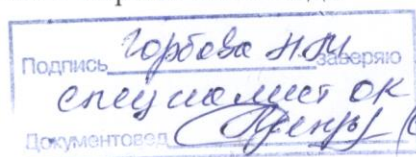 Подпись Горбова Н.М заверяю
специалист ОК
Документовед